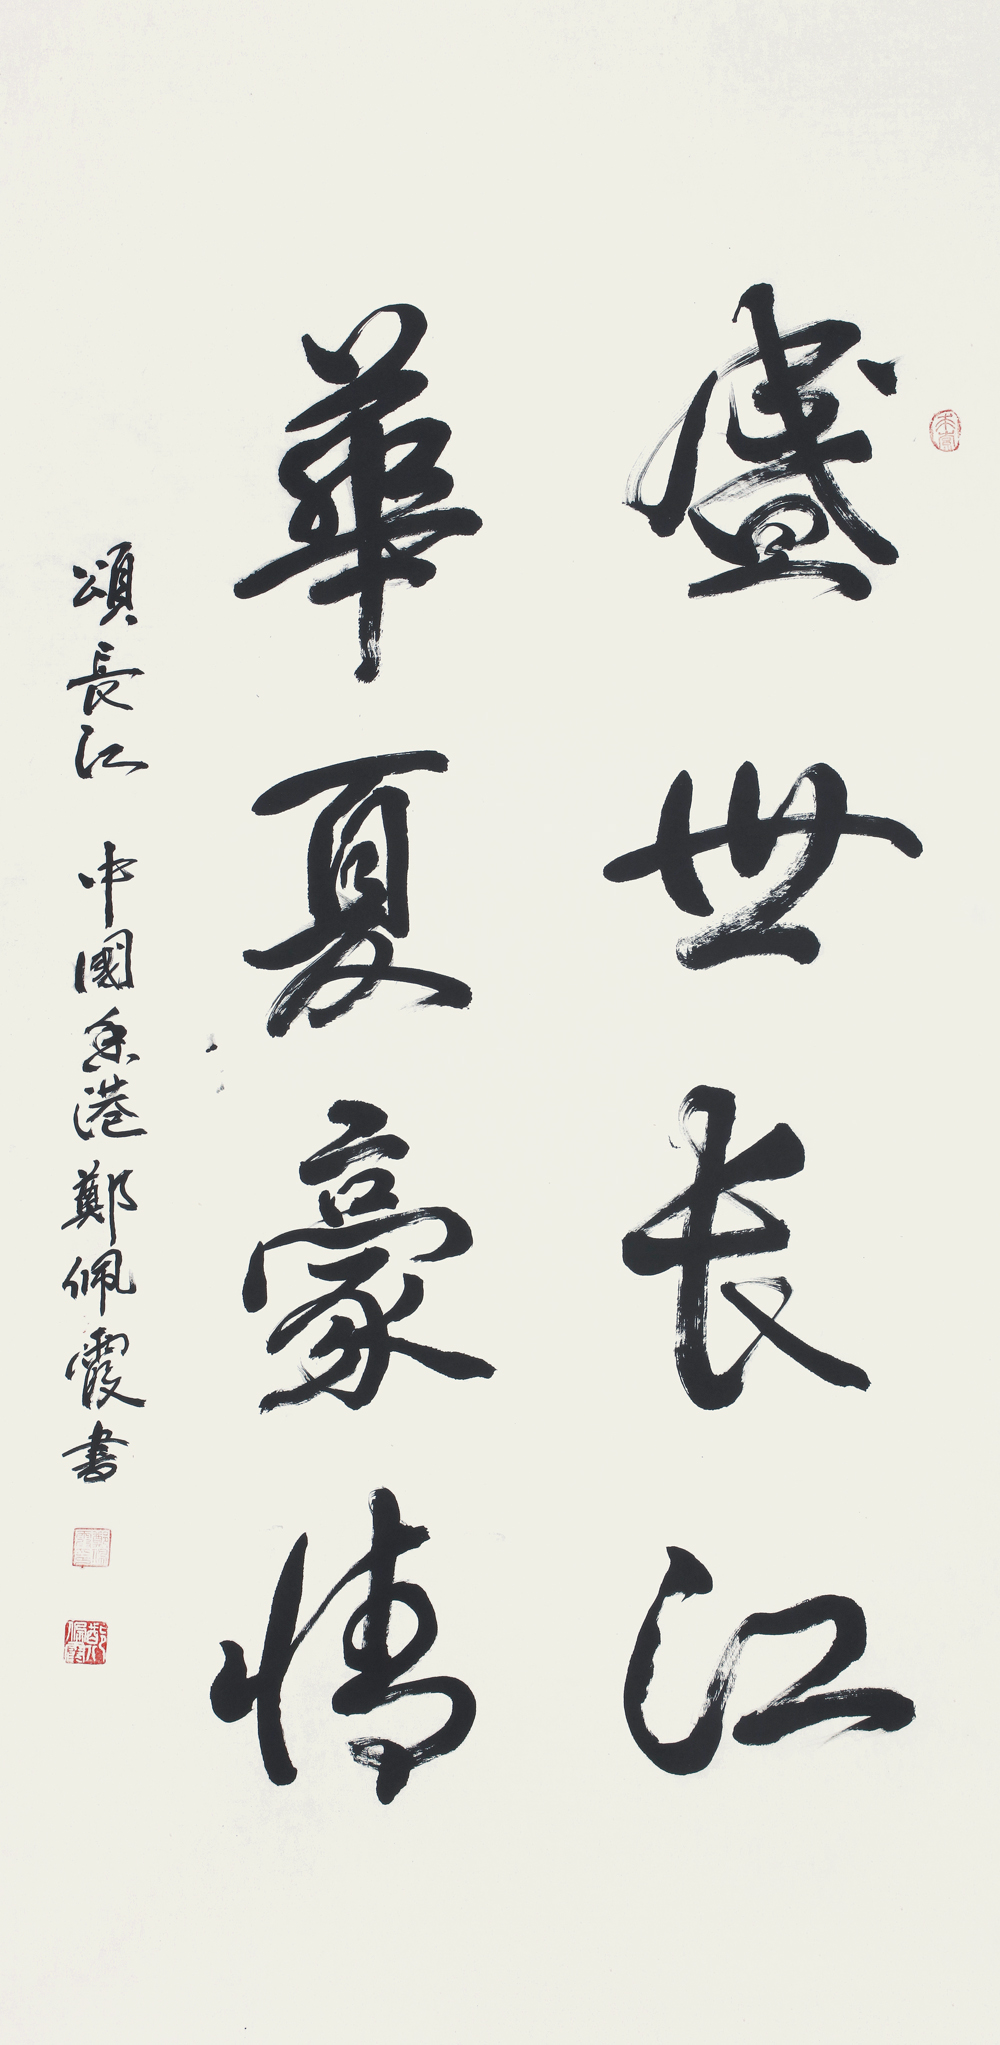 盛世长江
華夏豪情
頌長江 中國香港鄭佩霞書